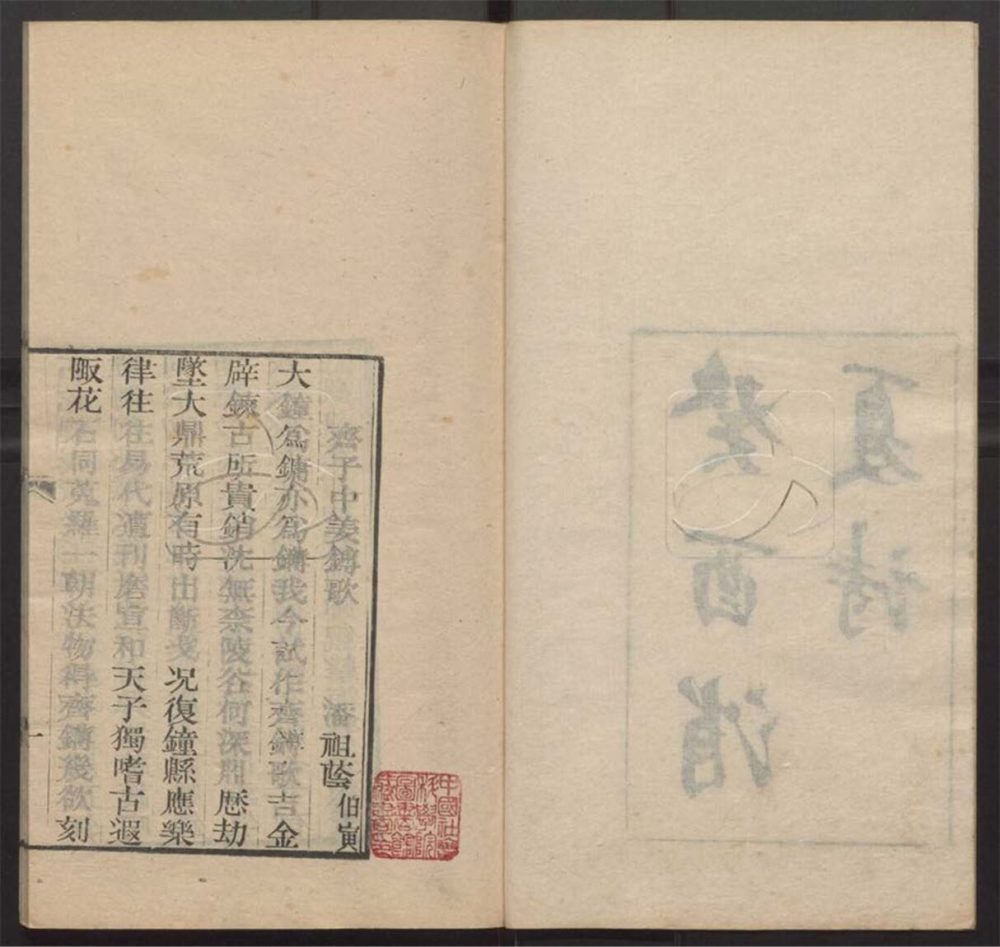 癸酉消
夏詩
齊子中姜鎛歌 潘祖蔭 伯寅
大鐘爲鏞亦爲鎛我今試作齊鎛歌吉金
辟鍊古所貴銷沈無柰陵谷何深淵歷劫
墜大鼎荒原有時出斷戈况復鐘縣應樂
律往往易代遭刊磨宣和天子獨嗜古遐
陬花石同蒐羅一朝法物得齊鎛幾欲刻
一